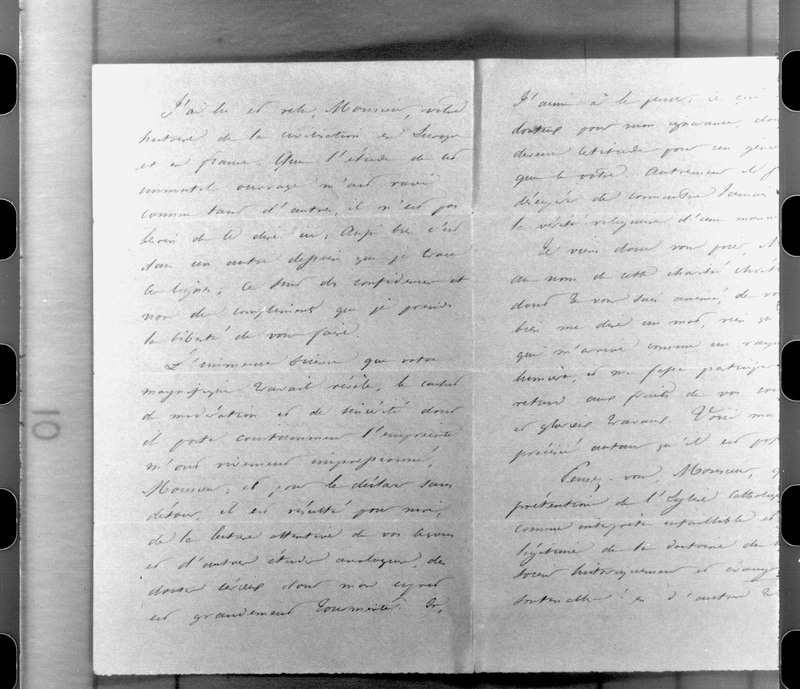 J'ai lu et relu, Monsieur, votre
histoire de la civilisation en Europe
et en france. Que l'étude de cet
immortel ouvrage m'ait ravi
comme tant d'autres, il n'est pas
besoin de le dire ici; Aussi bien c'est
dans un autre dessein que je trace
ces lignes; Ce sont des confidences et
non des compliments que je prends
la liberté de vous faire.
L'immense science que votre
magnifique travail révèle, le cachet
de modération et de sincérité dont
il porte constamment l'empreinte
m'ont vivement impressionné,
Monsieur, et, pour le déclarer sans
détour, il est résulté pour moi,
de la lecture attentive de vos leçons
et d'autres études analogues, des
doutes sérieux dont mon esprit
est grandement tourmenté. Or,
J'aime à le penser, ce qui
douteux pour mon ignorance,
certitude pour un
que le vôtre. Autrement il
désespérer de connaître jamais
la vérité religieuse d'une
Je viens donc vous prier,
au nom de cette charité
dont je vous sais animé, de
bien me dire un mot, rien
qui m'arrive comme un rayon
lumière, et me fasse participer
retour aux fruits de vos
et glorieux travaux. Voici ma
précisé autant qu'il est
Pensez-vous, Monsieur, q
prétention de l'Eglise Catholique
comme interprète infaillible et
légitime de la doctrine de
soient historiquement et
soutenables? et d'autre
10